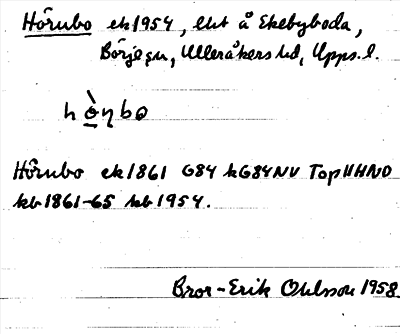 Hörnbo ek1954, lht å Ekebyboda,
Börje sn, Ulleråkers hd, Upps. l.
Hörnbo ek1861 G84 kG84NV Top11HNO
kb1861-65 hb1954.
Bror-Erik Ohlsson 1958